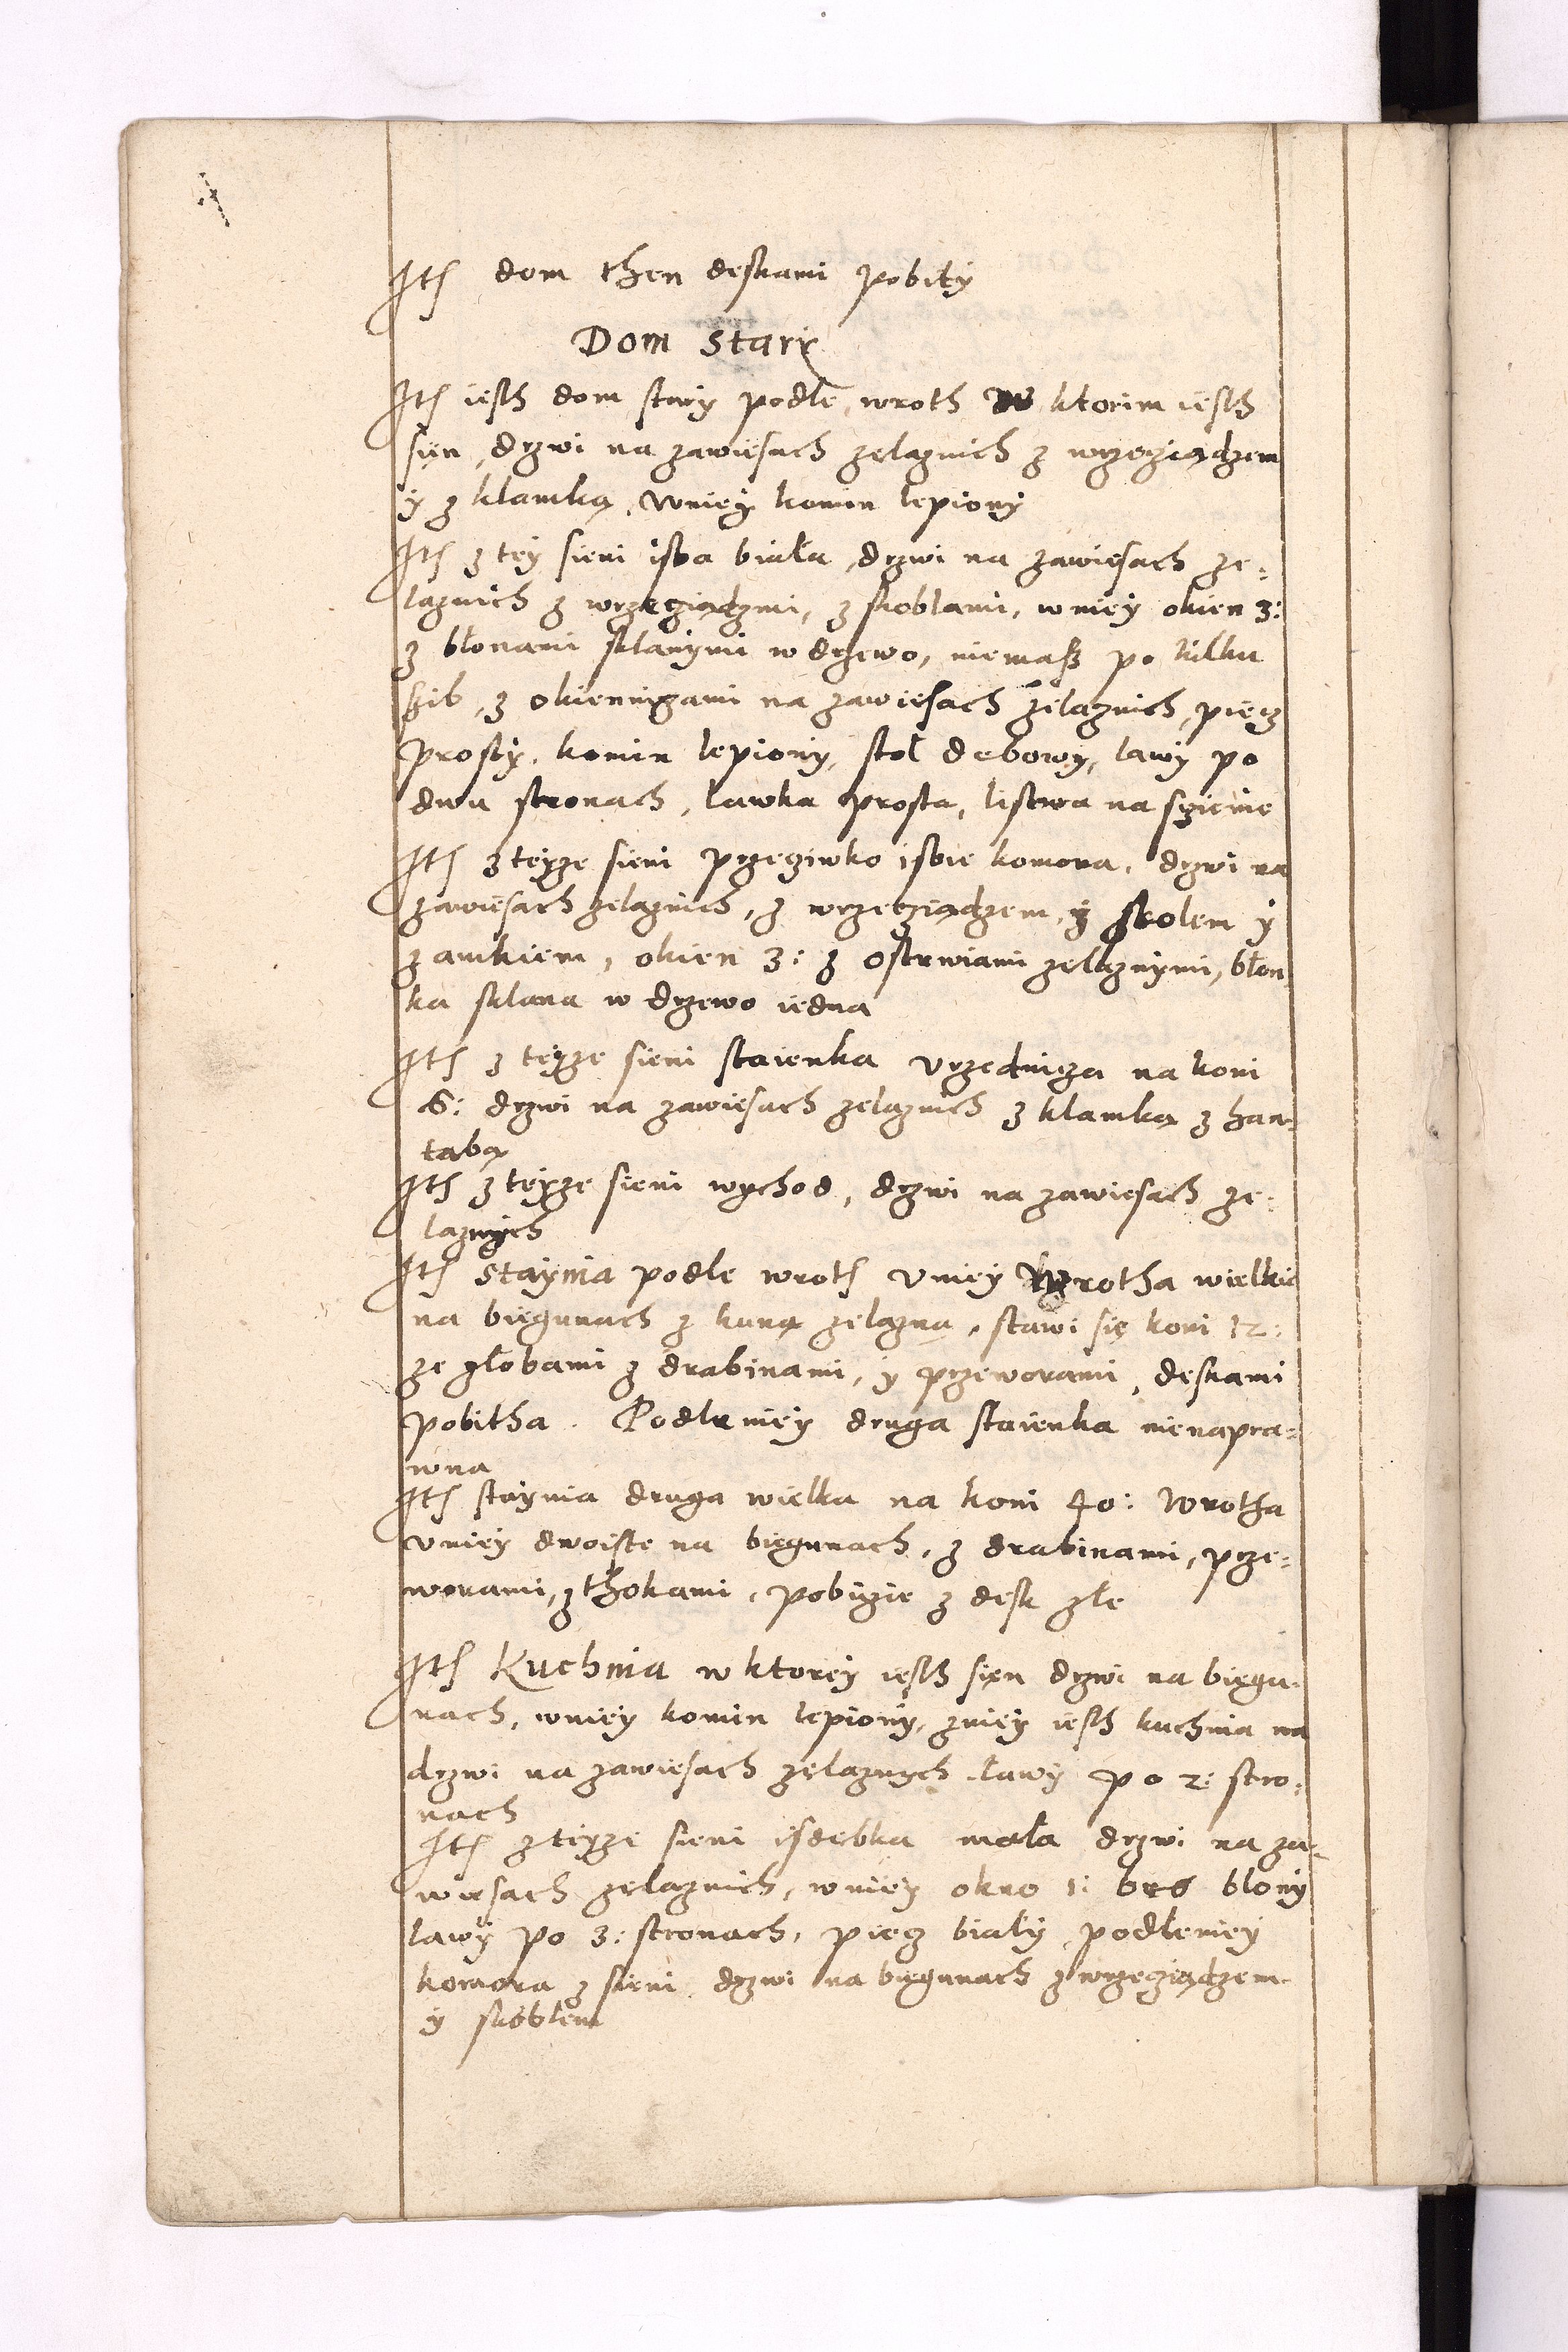 Itē dom then deskami pobity
Dom Stary
Itē iesth dom stary podle wroth w ktorim iesth
sien, drzwi na zawiesach zelaznich z wrzecziądzem
y z klamką, wniey komin lepiony
Itē z tey sieni isba biała, drzwi na zawiesach ze=
laznich z wrzecziądzmi, z skoblami, wniey okien 3:
z błonami sklanymi w drzewo, niemasz po kilku
szib, z okiennicami na zawiesach zelaznich, piecz
prosty, komin lepiony, stoł debowy, lawy po
dwu stronach, lawka prosta, listwa na scienie
Itē z teyze sieni przeciwko isbie komora, drzwi na
zawiesach zelaznich, z wrzecziądzem, y skolem y
zamkiem, okien 3: z ostrwiami zelaznymi, błon
ka sklana w drzewo iedna
Itē z teyze sieni staienka vrzednicza na koni
6: drzwi na zawiesach zelaznich z klamką z han=
tabą
Itē z teyze sieni wychod, drzwi na zawiesach ze=
laznych
Itē Staynia podle wroth vniey Wrotha wielkie
na biegunach z kuną zelazną, stawi się koni 12:
ze złobami z drabinami, y przeworami, deskami
pobitha. Podle niey druga staienka nienapra=
wna
Itē staynia druga wielka na koni 40: Wrotha
vniey dwoiste na biegunach, z drabinami, prze=
worami, z thokami, pobicie z desk złe
Itē Kuchnia w ktorey iesth sien drzwi na biegu=
nach, wniey komin lepiony, zniey iesth kuchnia na
drzwi na zawiesach zelaznych ławy po 2: stro=
nach
Itē z teyze sieni isdebka mała drzwi na za=
wiesach zelaznich, wniey okno 1: bes błony
lawy po 3: stronach, piecz biały, podle niey
komora z sieni drzwi na biegunach z wrzecziądzem
y skoblem